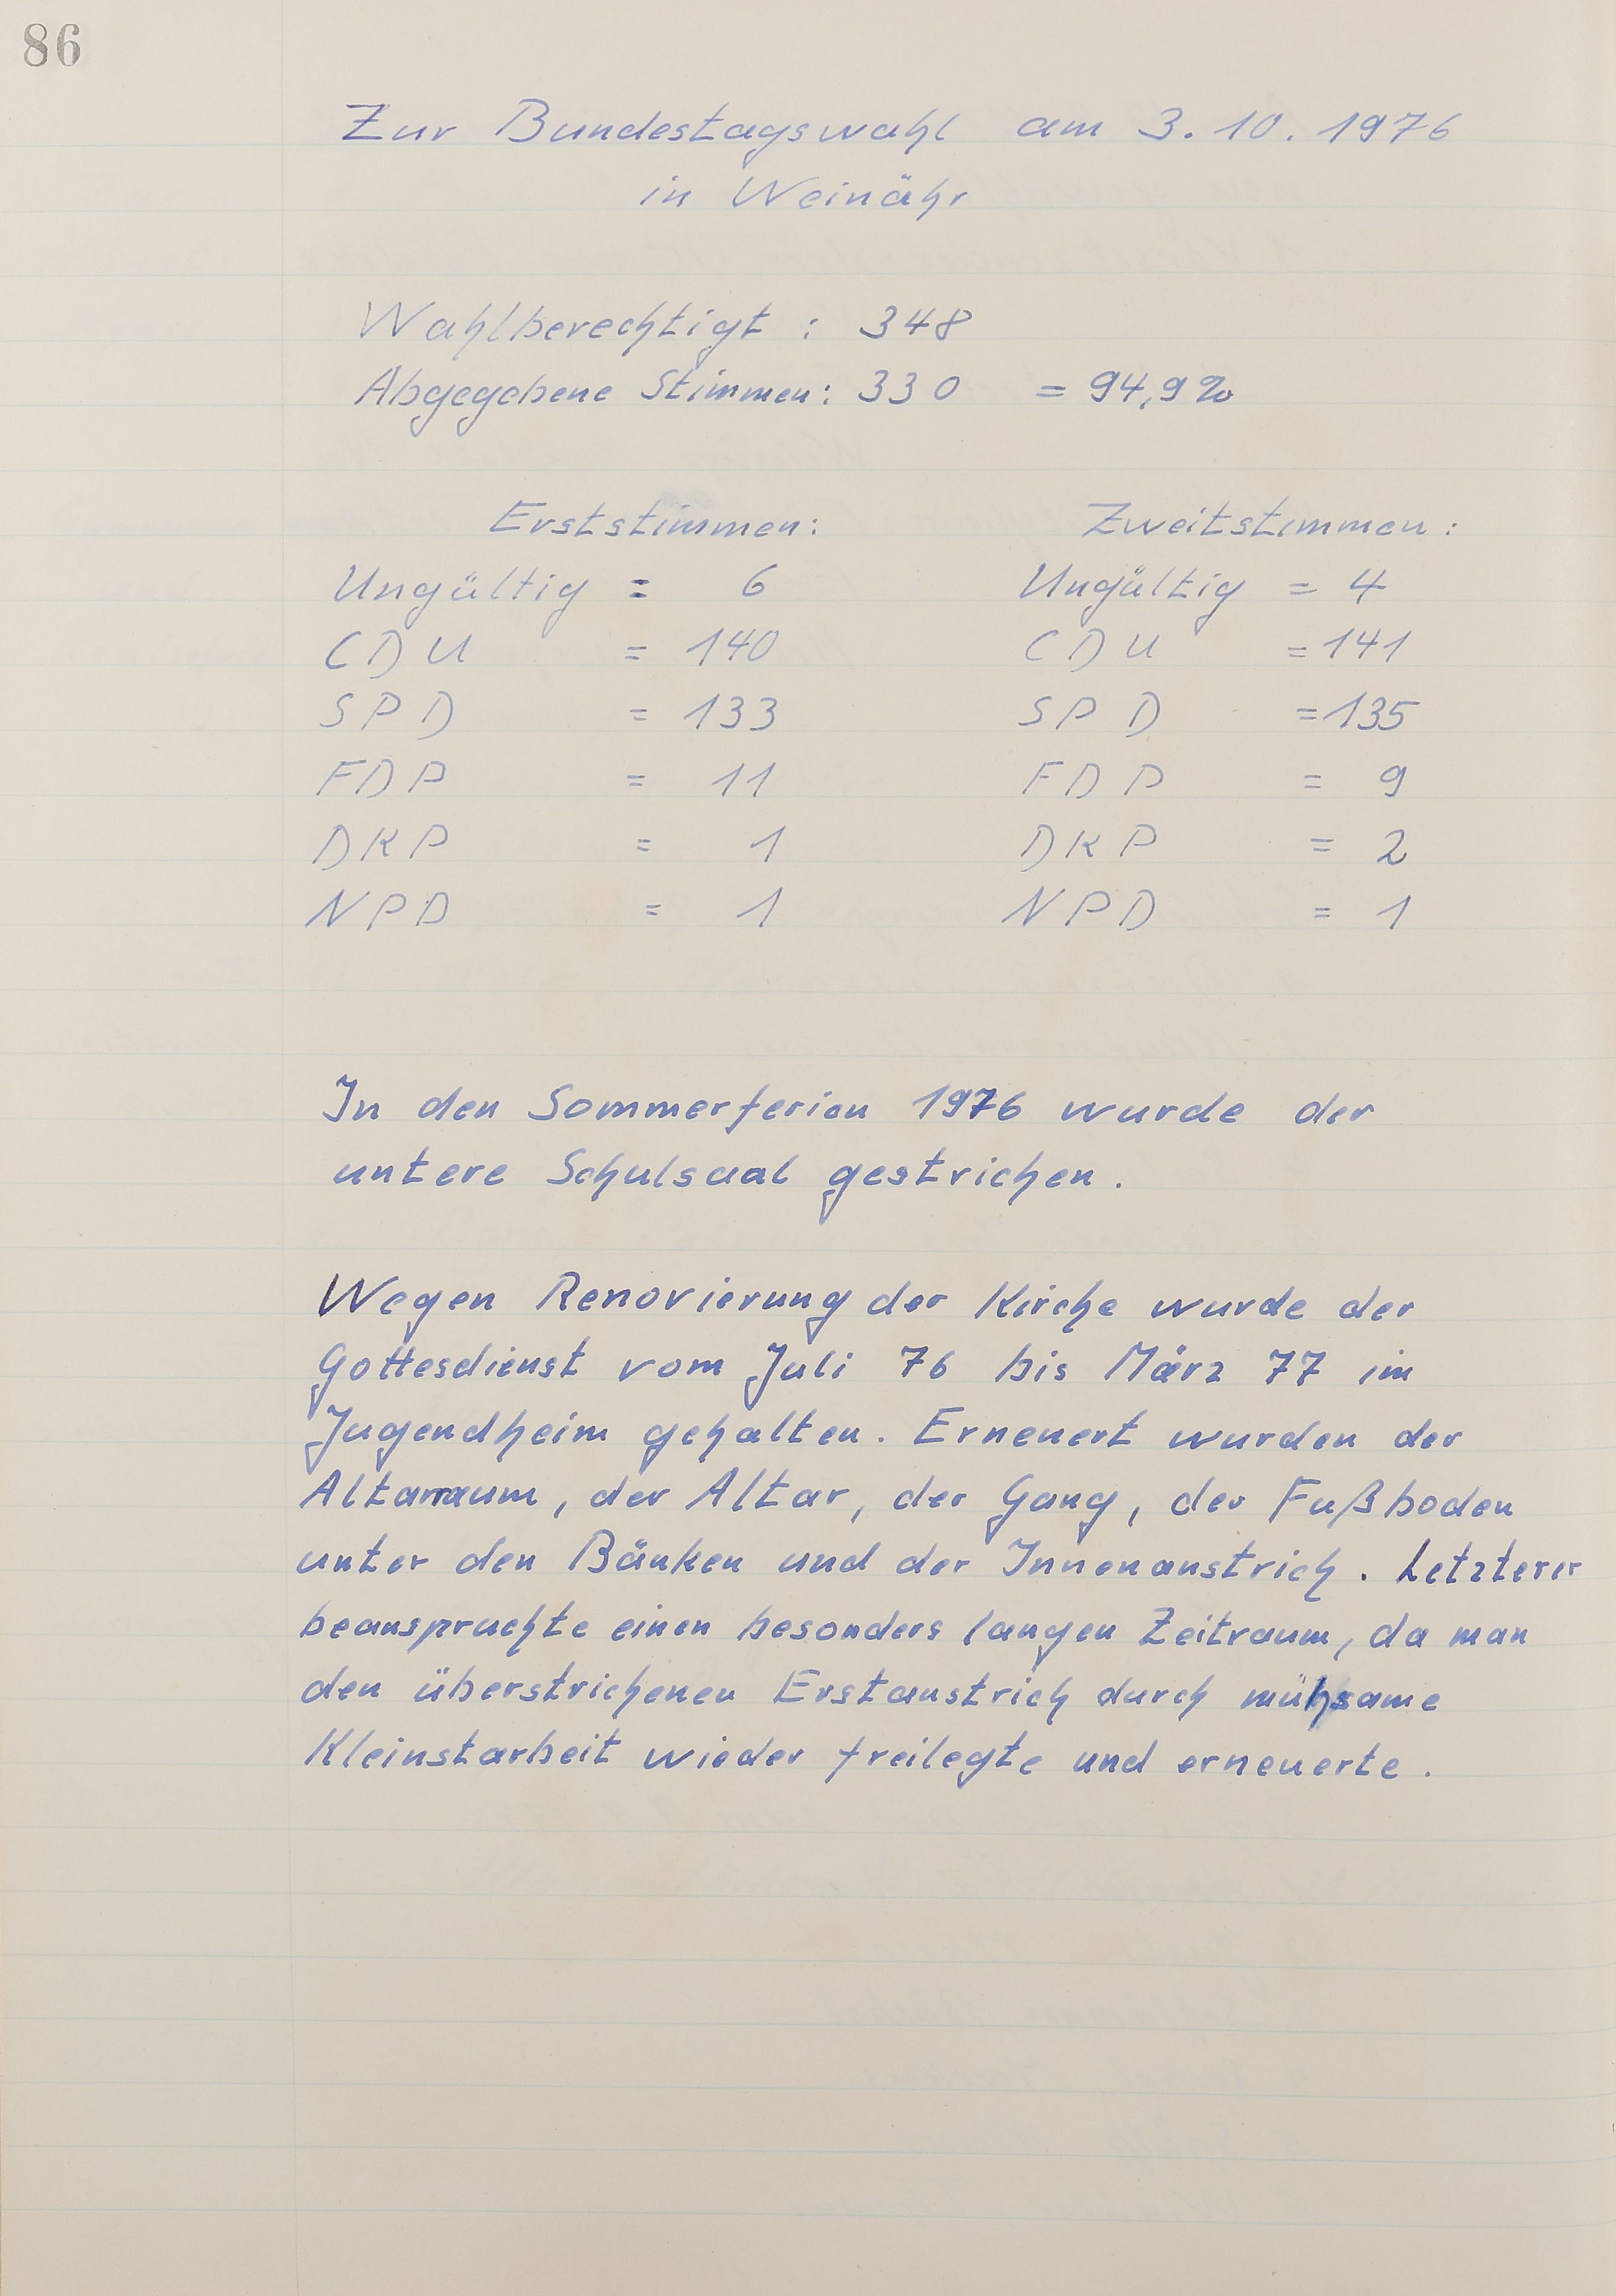 86
Zur Bundestagswahl am 3.10.1976
in Weinähr
Wahlberechtigt : 348
Abgegebene Stimmen: 330 = 94,9%
Erststimmen: Zweitstimmen:
Ungültig = 6 Ungültig = 4
CDU = 140 CDU = 141
SPD = 133 SPD = 135
FDP = 11 FDP = 9
DKP = 1 DKP = 2
NPD = 1 NPD = 1
In den Sommerferien 1976 wurde der
untere Schulsaal gestrichen.
Wegen Renovierung der Kirche wurde der
Gottesdienst vom Juli 76 bis März 77 im
Jugendheim gehalten. Erneuert wurden der
Altarraum, der Altar, der Gang, der Fußboden
unter den Bänken und der Innenanstrich. Letzterer
beanspruchte einen besonders langen Zeitraum, da man
den überstrichenen Erstanstrich durch mühsame
Kleinstarbeit wieder freilegte und erneuerte.